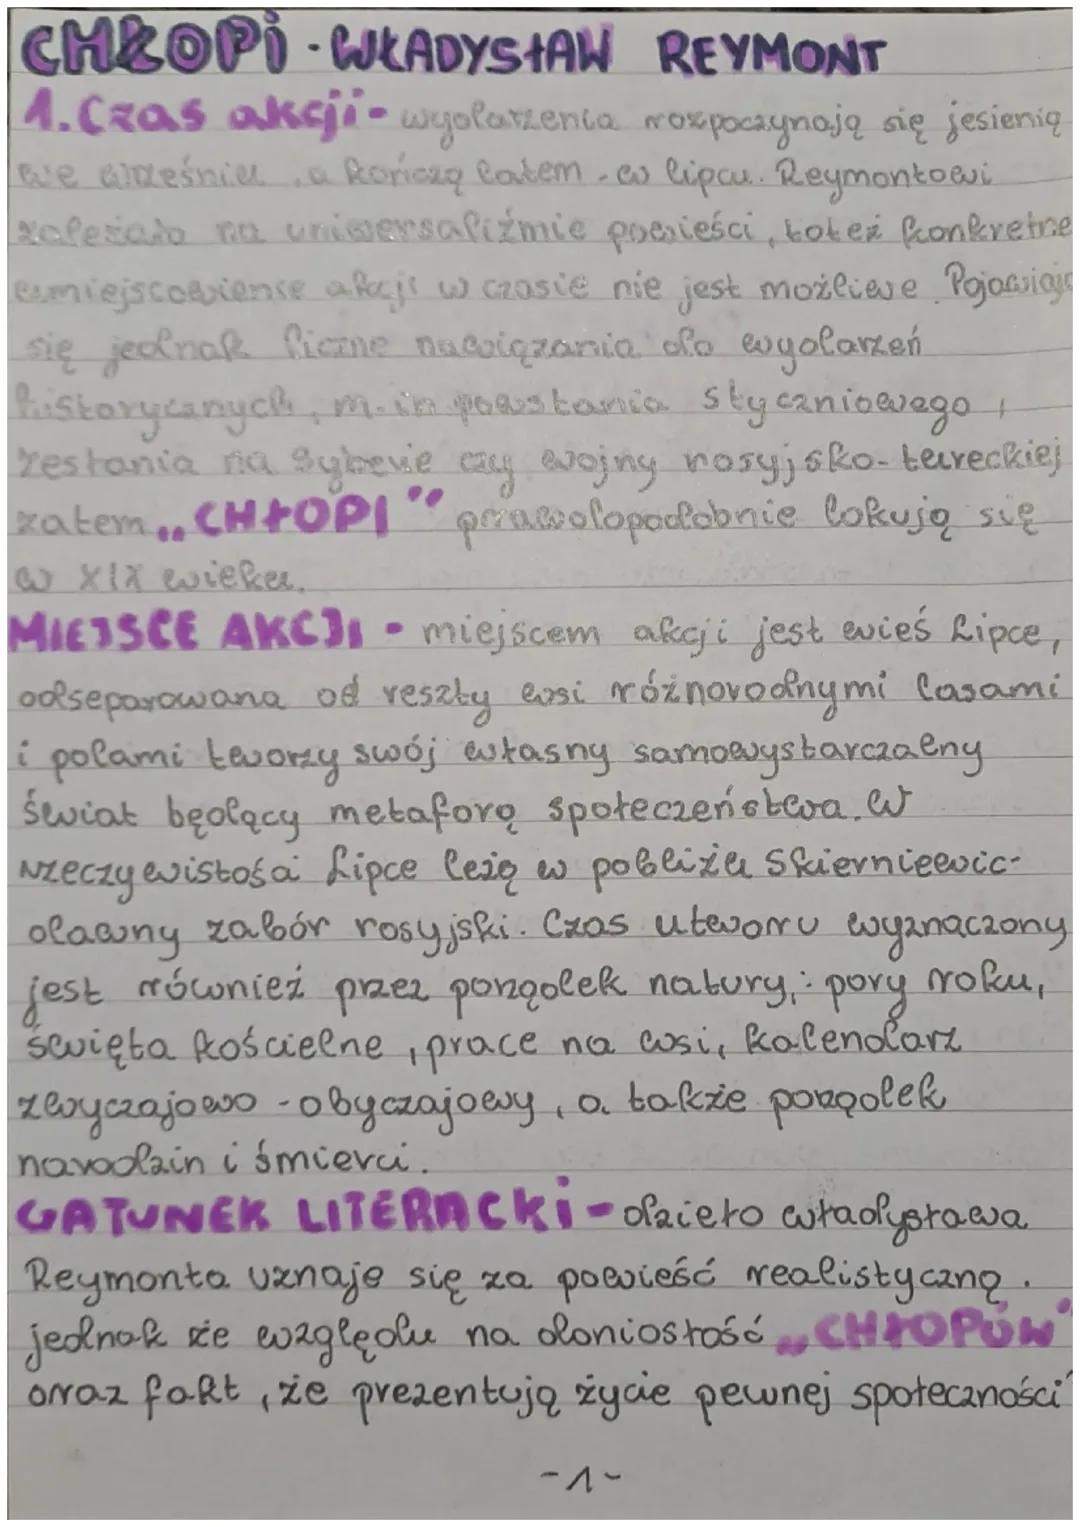 CHŁOPI - WŁADYSŁAW REYMONT
1. Czas akcji - wydarzenia rozpoczynają się jesienią
we wrześniu, a kończą latem - w lipcu. Reymontowi
zależało na uniwersaliźmie powieści, toteż konkretne
umiejscowienie akcji w czasie nie jest możliwe. Pojawiają
się jednak liczne nawiązania do wydarzeń
historycznych, m.in powstania styczniowego,
zesłania na Syberię czy wojny rosyjsko-tureckiej
zatem „CHŁOPI" prawdopodobnie lokują się
w XIX wieku.
MIEJSCE AKCJI - miejscem akcji jest wieś Lipce,
odseparowana od reszty wsi różnorodnymi lasami
i polami tworzy swój własny samowystarczalny
świat będący metaforą społeczeństwa. W
rzeczywistości Lipce leżą w pobliżu Skierniewic-
dawny zabór rosyjski. Czas utworu wyznaczony
jest również przez porządek natury,: pory roku,
święta kościelne, prace na wsi, kalendarz
zwyczajowo - obyczajowy, a także porządek
narodzin i śmierci.
GATUNEK LITERACKI - dzieło władysława
Reymonta uznaje się za powieść realistyczną.
jednak ze względu na doniosłość „CHŁOPÓW"
oraz fakt, że prezentują życie pewnej społeczności
-1-